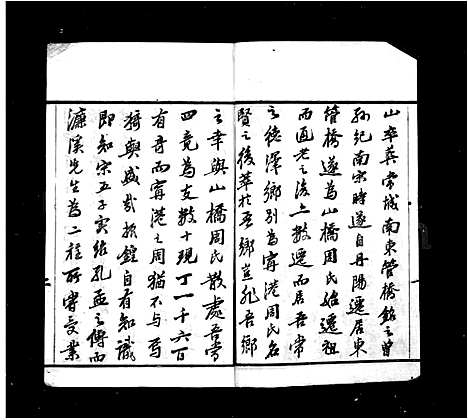 山卒葬常城南東管橋銘之曾
孫紀南宋時遂自丹陽遷居東
管橋遂為山橋周氏始遷祖
而直老之後亦數遷而居吾常
之德澤鄉別為寗港周氏名
賢之後萃於吾鄉豈非吾鄉
之幸與山橋周氏散處吾常
四竟為支數十現丁一千六百
有奇而寗港之周猶不与焉
猗與盛哉據鏜自有知識
即知宋五子實紹孔孟之傳而
濂溪先生為二程所嘗受業